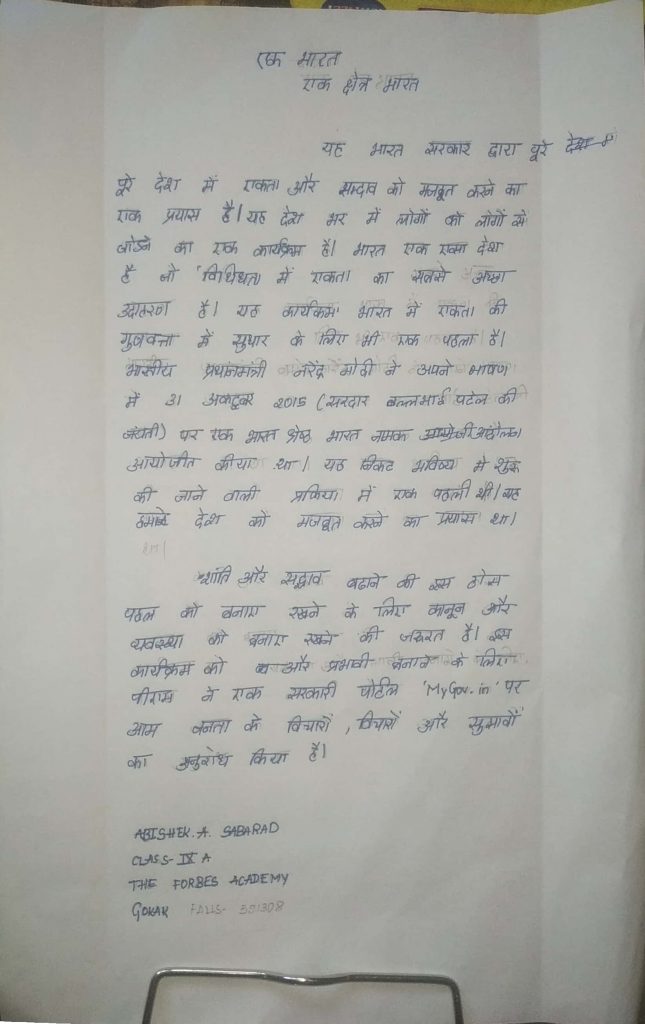 एक भारत
एक क्षेत्र भारत
यह भारत सरकार द्वारा पूरे देश में
पूरे देश में एकता और सद्भाव को मजबूत करने का
एक प्रयास है। यह देश भर में लोगों को लोगों से
जोडने का एक कार्यक्रम है। भारत एक एसा देश
है जो 'विधिधता में एकता का सबसे अच्छा
उदाहरण है। यह कार्यक्रम भारत में एकता की
गुणवत्ता में सुधार के लिए भी एक पहला है।
भारतीय प्रधानमंत्री नरेंद्र मोदी ने अपने भाषण
में 31 अकटूबर 2015 (सरदार वल्लभाई पटेल की
जयंती) पर एक भारत श्रेष्ठ भारत नमक अंदोलन
आयोजीत कीया था। यह निकट भविष्य में शुरू
की जाने वाली प्रक्रिया में एक पहली थी। यह
हमारे देश को मजबूत करने का प्रयास था।
था।
शांति और सद्भाव बढाने की इस ठोस
पहल को बनाए रखने के लिए कानून और
व्यवस्था को बनाए रखने की जरुरत है। इस
कार्यक्रम को और प्रभावी बनाने के लिए
पीएम ने एक सरकारी पोर्टल 'MyGov.in' पर
आम जनता के विचारों, विचारों और सुझावों
का अनुरोध किया है।
ABISHEK.A. SABARAD
CLASS- IX A
THE FORBES ACADEMY
GOKAK FALLS- 591308